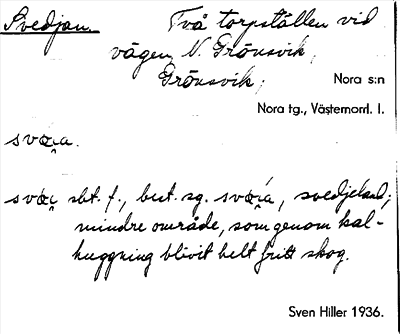 Svedjan. Två torpställen vid
vägen N. Grönsvik,
Grönsvik; Nora s:n
Nora tg., Västernorrl. l.
svœ̞ɪa.
svœ̞ɪ sbt. f., best. sg. svœ̞́ɪa, svedjeland;
mindre område, som genom kal-
huggning blivit helt fritt skog.
Sven Hiller 1936.